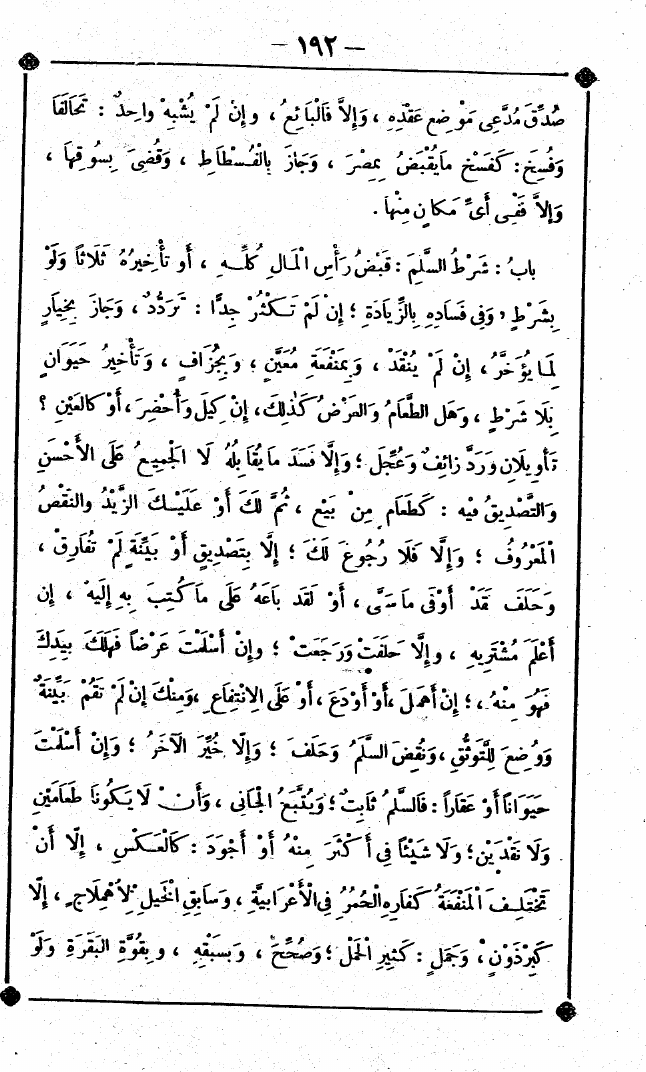 — ١٩٢ —
صُدِّقَ مُدَّعِى مَوْضِعِ عَقْدِهِ ، وَإِلَّا فَالْبَائِعُ ، وإِنْ لَمْ يُشْبِهْ واحِدٌ : تَحَالَفَا
وَفُسِخَ : كَفَسْخِ مَا يُقْبَضُ بِمِصْرَ ، وَجَازَ بِالْفُسْطَاطِ ، وَقُضِىَ بِسُوقِهَا ،
وَإِلَّا فَفِى أَىِّ مَكَانٍ مِنْهَا .
بابُ : شَرْطُ السَّلَمِ : قَبْضُ رَأْسِ الْمَالِ كُلِّهِ ، أَو تَأْخِيرُهُ ثَلَاثًا وَلَوْ
بِشَرْطٍ ، وَفِى فَسَادِهِ بِالزِّيَادَةِ ؛ إِنْ لَمْ تَكْثُرْ جِدًّا : تَرَدُّدٌ ، وَجَازَ بِخِيَارٍ
لِمَا يُؤَخَّرُ ، إِنْ لَمْ يُنْقَدْ ، وَبِمَنْفَعَةِ مُعَيَّنٍ ؛ وَبِجُزَافٍ ، وَتَأْخِيرُ حَيَوَانٍ
بِلَا شَرْطٍ ، وَهَلِ الطَّعَامُ وَالعَرْضُ كَذٰلِكَ ، إِنْ كِيلَ وَأُحْضِرَ ، أَوْ كالْعَيْنِ ؟
تَأْوِيلَانِ وَرَدُّ زائِفٍ وَعُجِّلَ ؛ وَإِلَّا فَسَدَ مَا يُقَابِلُهُ لَا الْجَمِيعُ عَلَى الأَحْسَنِ
وَالتَّصْدِيقُ فِيهِ : كَطَعَامٍ مِنْ بَيْعٍ ، ثُمَّ لَكَ أَوْ عَلَيْكَ الزَّيْدُ والنَّقْصُ
الْمَعْرُوفُ ؛ وَإِلَّا فَلَا رُجُوعَ لَكَ ؛ إِلَّا بِتَصْدِيقٍ أَوْ بَيِّنَةٍ لَمْ تُفَارِقْ ،
وَحَلَفَ لَقَدْ أَوْفَى مَا سَمَّى ، أَوْ لَقَد بَاعَهُ عَلَى مَا كُتِبَ بِهِ إِلَيْهِ ، إِن
أَعْلَمَ مُشْتَرِيهِ ، وإِلَّا حَلَفْتَ وَرَجَعْتَ ؛ وإِنْ أَسْلَمْتَ عَرْضًا فَهَلَكَ بِيَدِكَ
فَهُوَ مِنْهُ ، ؛ إِنْ أَهْمَلَ ، أَوْ أَوْدَعَ ، أَوْ عَلَى الِانْتِفَاعِ ، وَمِنْكَ إِنْ لَمْ تَقُمْ بَيِّنَةٌ
وَوُضِعَ لِلتَّوَثُّقِ ، وَنُقِضَ السَّلَمُ وَحَلَفَ ؛ وَإِلَّا خُيِّرَ الآخَرُ ؛ وَإِنْ أَسْلَمْتَ
حَيَوَانًا أَوْ عَقَارًا : فَالسَّلَمُ ثَابِتٌ ؛ وَيُتَّبَعُ الْجَانِى ، وَأَنْ لَا يَكُونَا طَعَامَيْنِ
وَلَا نَقْدَيْنِ ؛ وَلَا شَيْئًا فِى أَكْثَرَ مِنْهُ أَوْ أَجْوَدَ : كَالْعَكْسِ ، إِلَّا أَنْ
تَخْتَلِفَ الْمَنْفَعَةُ كَفَارِهِ الْحُمُرِ فِى الْأَعْرَابِيَّةِ ، وَسَابِقِ الْخَيْلِ لَا هِمْلَاجٍ ، إِلَّا
كَبِرْذَوْنٍ ، وَجَمَلٍ : كَثِيرِ الْحَمْلِ ؛ وَصُحِّحَ ، وَبِسَبْقِهِ ، وبِقُوَّةِ الْبَقَرَةِ وَلَوْ